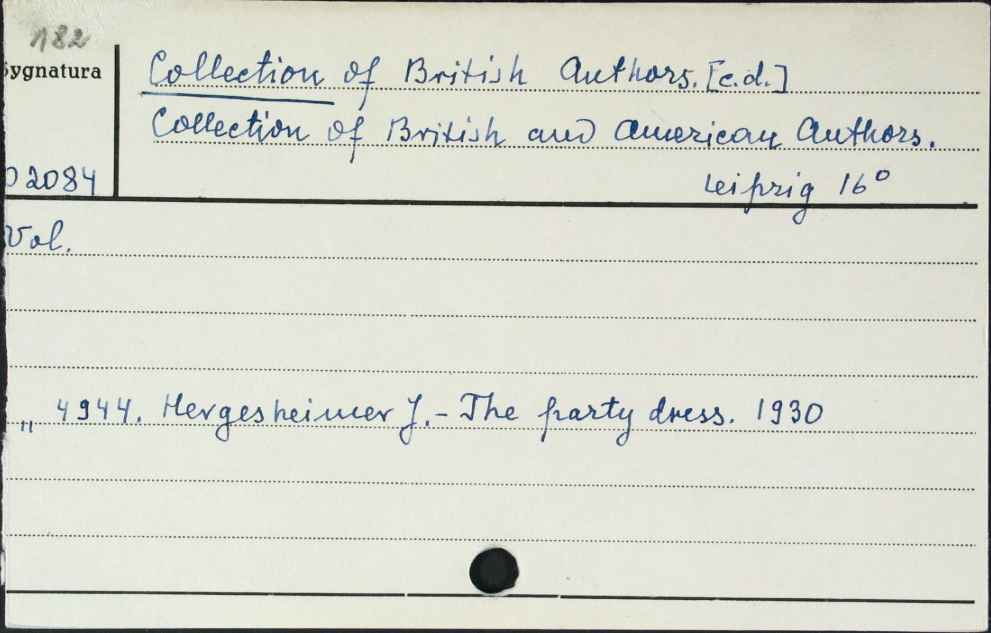 182
Sygnatura
Collection of British Authors. [c.d.]
Collection of British and American Authors.
02084
Leipzig 16°
Vol.
„ 4944. Hergesheimer J. - The party dress. 1930